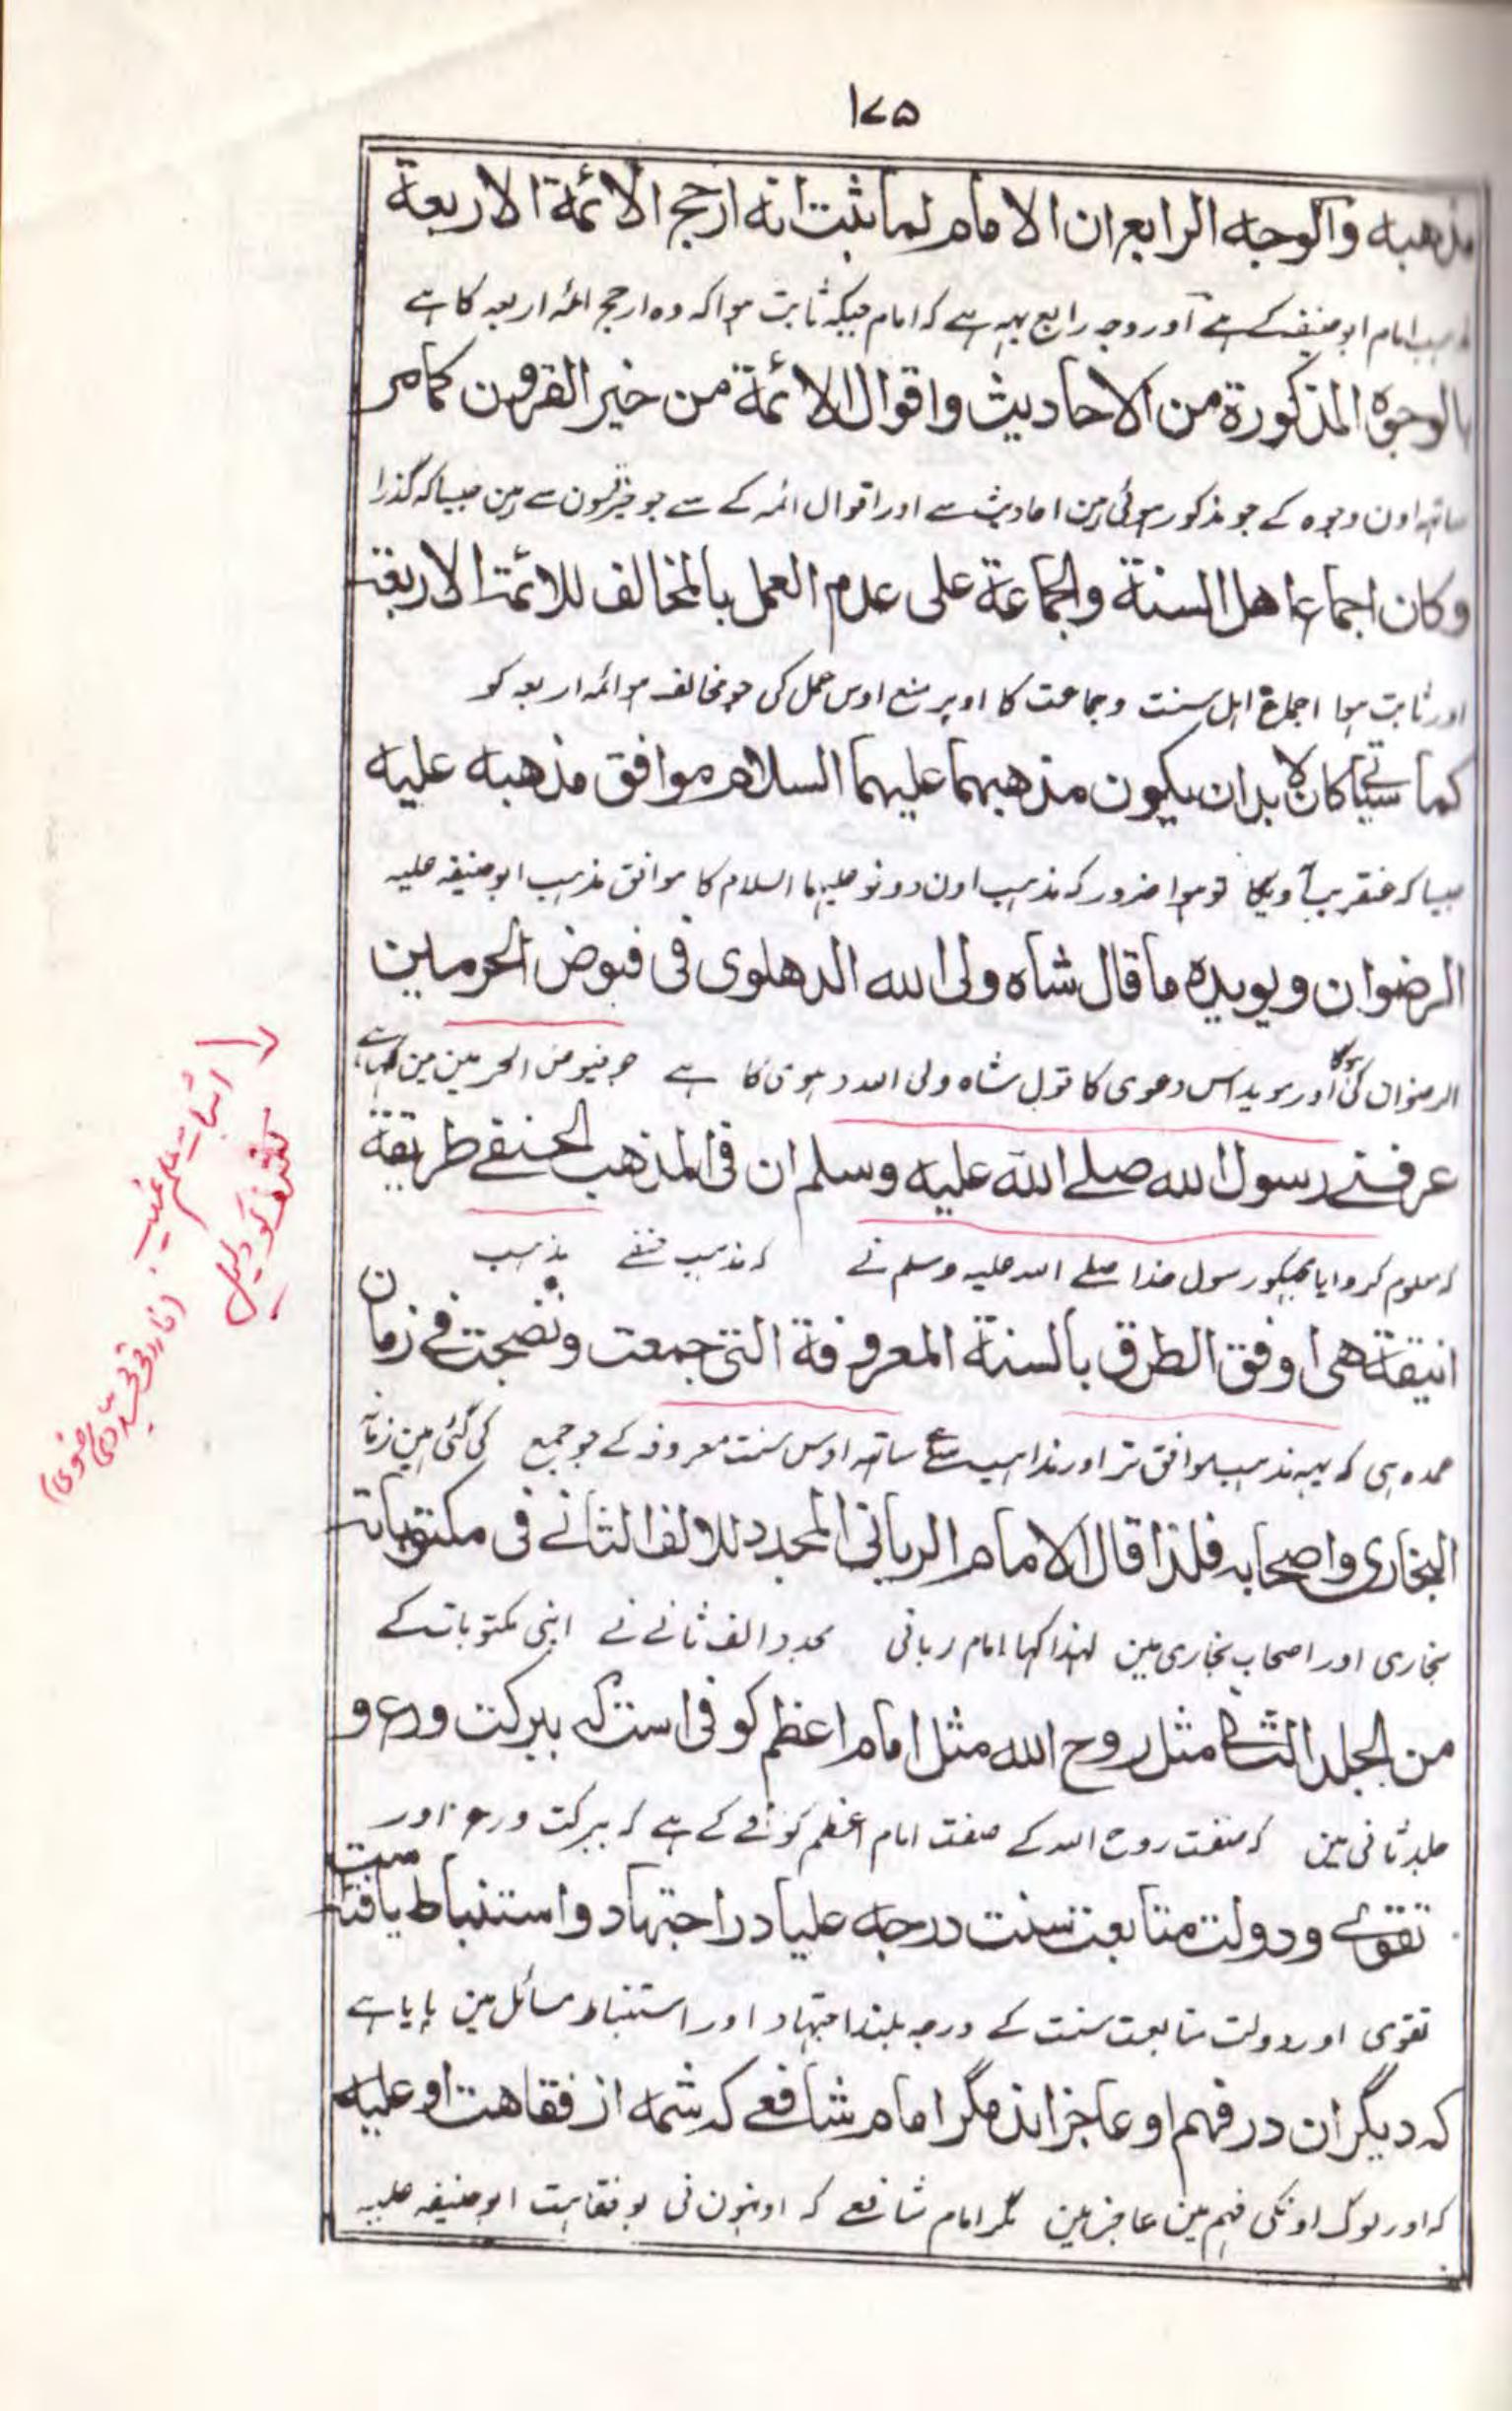 ۱۷۵
مذهبه وآلوجه الرابع ان الامام لما ثبت انه ارجح الائمة الاربعة
مذہب امام ابوحنیفہ کے ہے آور وجہ رابع یہہ ہے کہ امام جبکہ ثابت ہوا کہ وہ ارجح ائمہ اربعہ کا ہے
بالوجوه المذكورة من الاحاديث واقوال الائمة من خير القرون كمامر
ساتہہ اون وجوہ کے جو مذکور ہوئی ہین احادیث سے اور اقوال ائمہ کے سے جو خیر القرون سے ہین جیسا کہ گذرا
وكان اجماع اهل السنة والجماعة على عدم العمل بالمخالف للائمة الاربعة
اور ثابت ہوا اجماع اہل سنت وجماعت کا اوپر منع اوس عمل کی جو مخالف ہو ائمہ اربعہ کو
كما سيأتى كان لابد ان يكون مذهبهما عليهما السلام موافق مذهبه عليه
جیسا کہ عنقریب آویگا تو ہوا ضرور کہ مذہب اون دونو علیہما السلام کا موافق مذہب ابوحنیفہ علیہ
الرضوان ويويده ماقال شاه ولى الله الدهلوى فى فيوض الحرمين
الرضوان کی ہوگا آور موید اس دعوی کا قول شاہ ولی اللہ دہلوی کا ہے جو فیوض الحرمین مین کہا ہے
عرفنے رسول الله صلے الله عليه وسلم ان فى المذهب الحنفے طريقة
کہ معلوم کروایا مجہکو رسول خدا صلے اللہ علیہ وسلم نے کہ مذہب حنفے مذہب
انيقة هى اوفق الطرق بالسنة المعروفة التى جمعت ونضجت فے زمان
عمدہ ہی کہ یہہ مذہب موافق تر اور مذاہب سے ساتہہ اوس سنت معروفہ کے جو جمع کی گئی ہین زمانہ
البخارى واصحابه فلذا قال الامام الربانى المجدد للالف الثانے فى مكتوباته
بخاری اور اصحاب بخاری مین لہذا کہا امام ربانی مجدد الف ثانے نے اپنی مکتوبات کے
من الجلد الثانى مثل روح الله مثل امام اعظم کوفی است کہ ببرکت ورع و
جلد ثانی مین کہ صفت روح اللہ کے صفت امام اعظم کوفے کے ہے کہ ببرکت ورع اور
تقوے ودولت متابعت سنت درجہ علیا در اجتہاد واستنباط یافتہ است
تقوی اور دولت متابعت سنت کے درجہ بلند اجتہاد اور استنباط مسائل مین پایا ہے
کہ دیگران در فہم او عاجز اند مگر امام شافعے کہ شمہ از فقاہت او علیہ
کہ اور لوگ اونکی فہم مین عاجز ہین مگر امام شافعے کہ اونہون نی بو فقاہت ابوحنیفہ علیہ
اثبات علم غیب۔
کشف کو دلیل
(فاروقی مجددی رضوی)